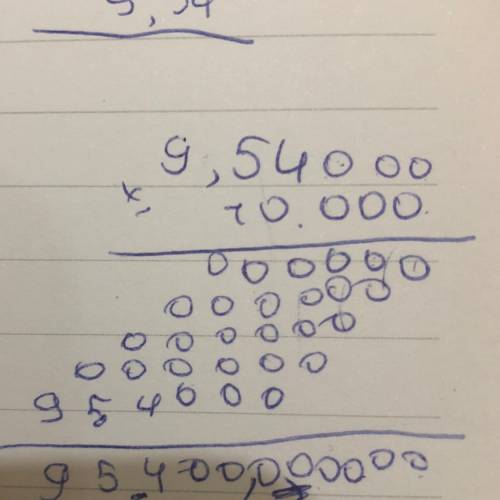 9,54
9,54000
x, 10.000
000000
000000
000000
000000
954000
95.400,000000